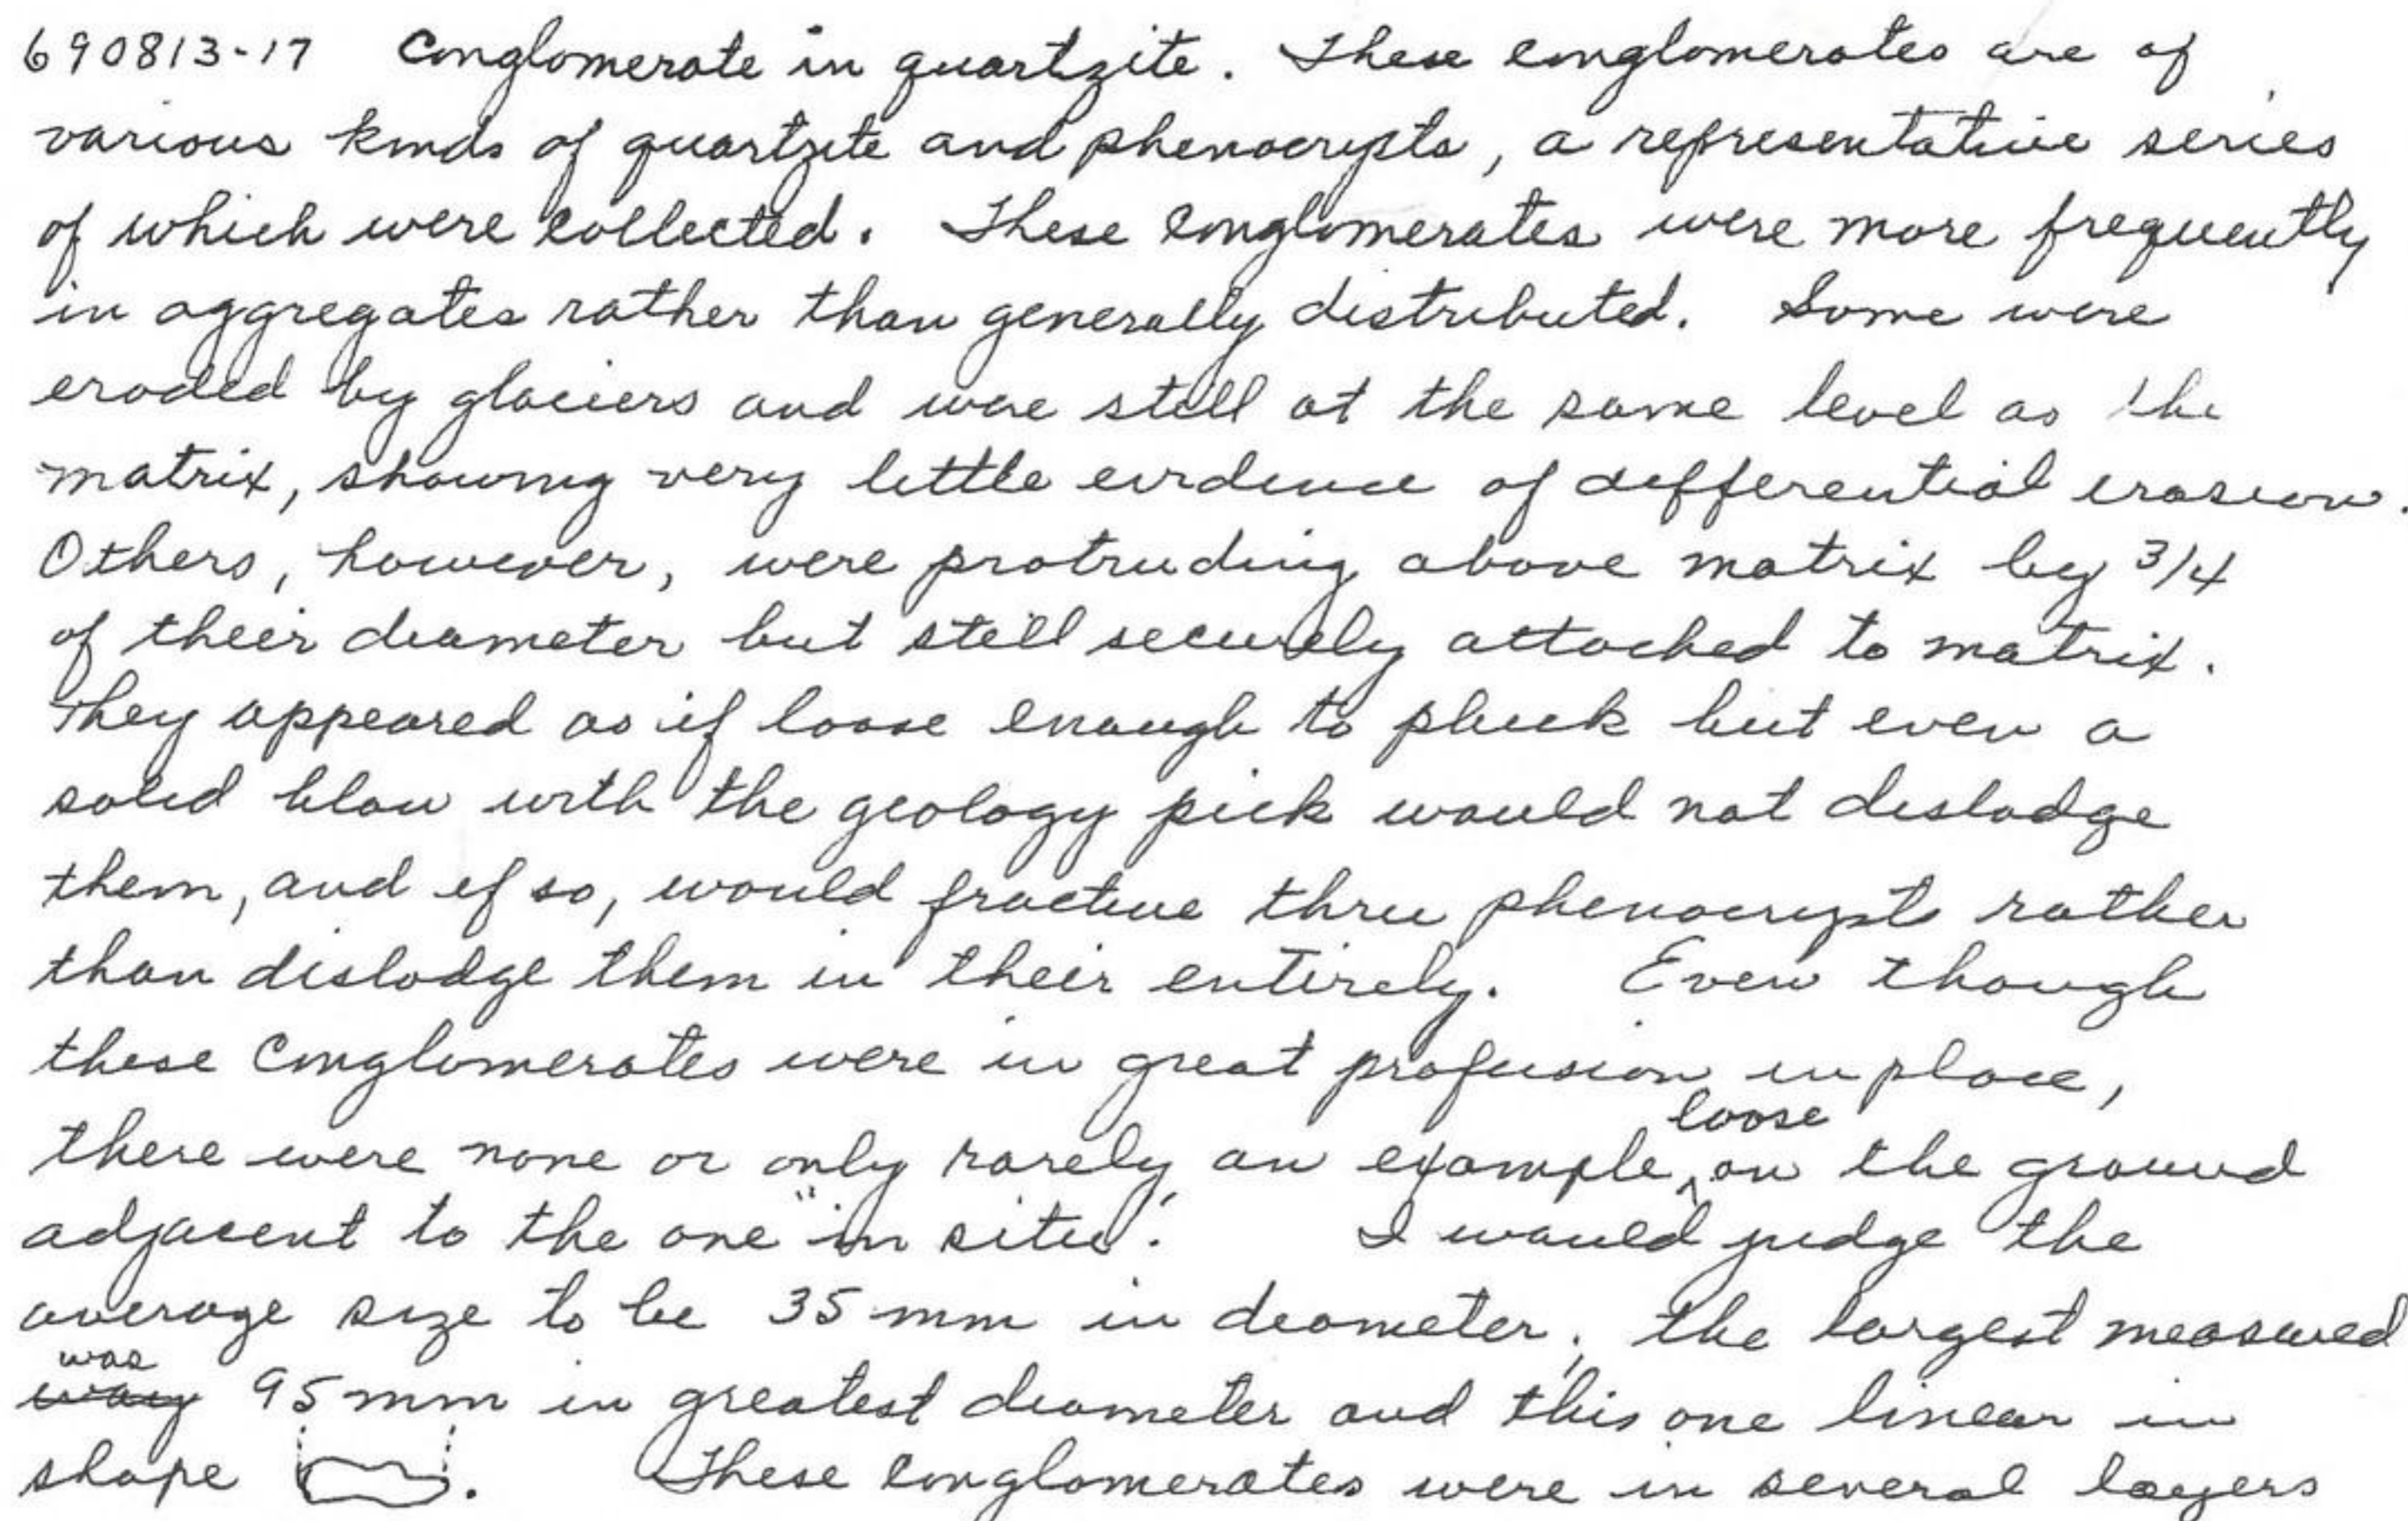 690813-17 Conglomerate in quartzite. These conglomerates are of
various kinds of quartzite and phenocrypts, a representative series
of which were collected. These conglomerates were more frequently
in aggregates rather than generally distributed. Some were
eroded by glaciers and were still at the same level as the
matrix, showing very little evidence of differential erosion.
Others, however, were protruding above matrix by 3/4
of their diameter but still securely attached to matrix.
They appeared as if loose enough to pluck but even a
solid blow with the geology pick would not dislodge
them, and if so, would fracture thru phenocrypts rather
than dislodge them in their entirely. Even though
these conglomerates were in great profusion in place,
loose
there were none or only rarely an example ^ on the ground
adjacent to the one "in situ". I would judge the
average size to be 35 mm in diameter; the largest measured
was
95 mm in greatest diameter and this one linear in
shape . These conglomerates were in several layers